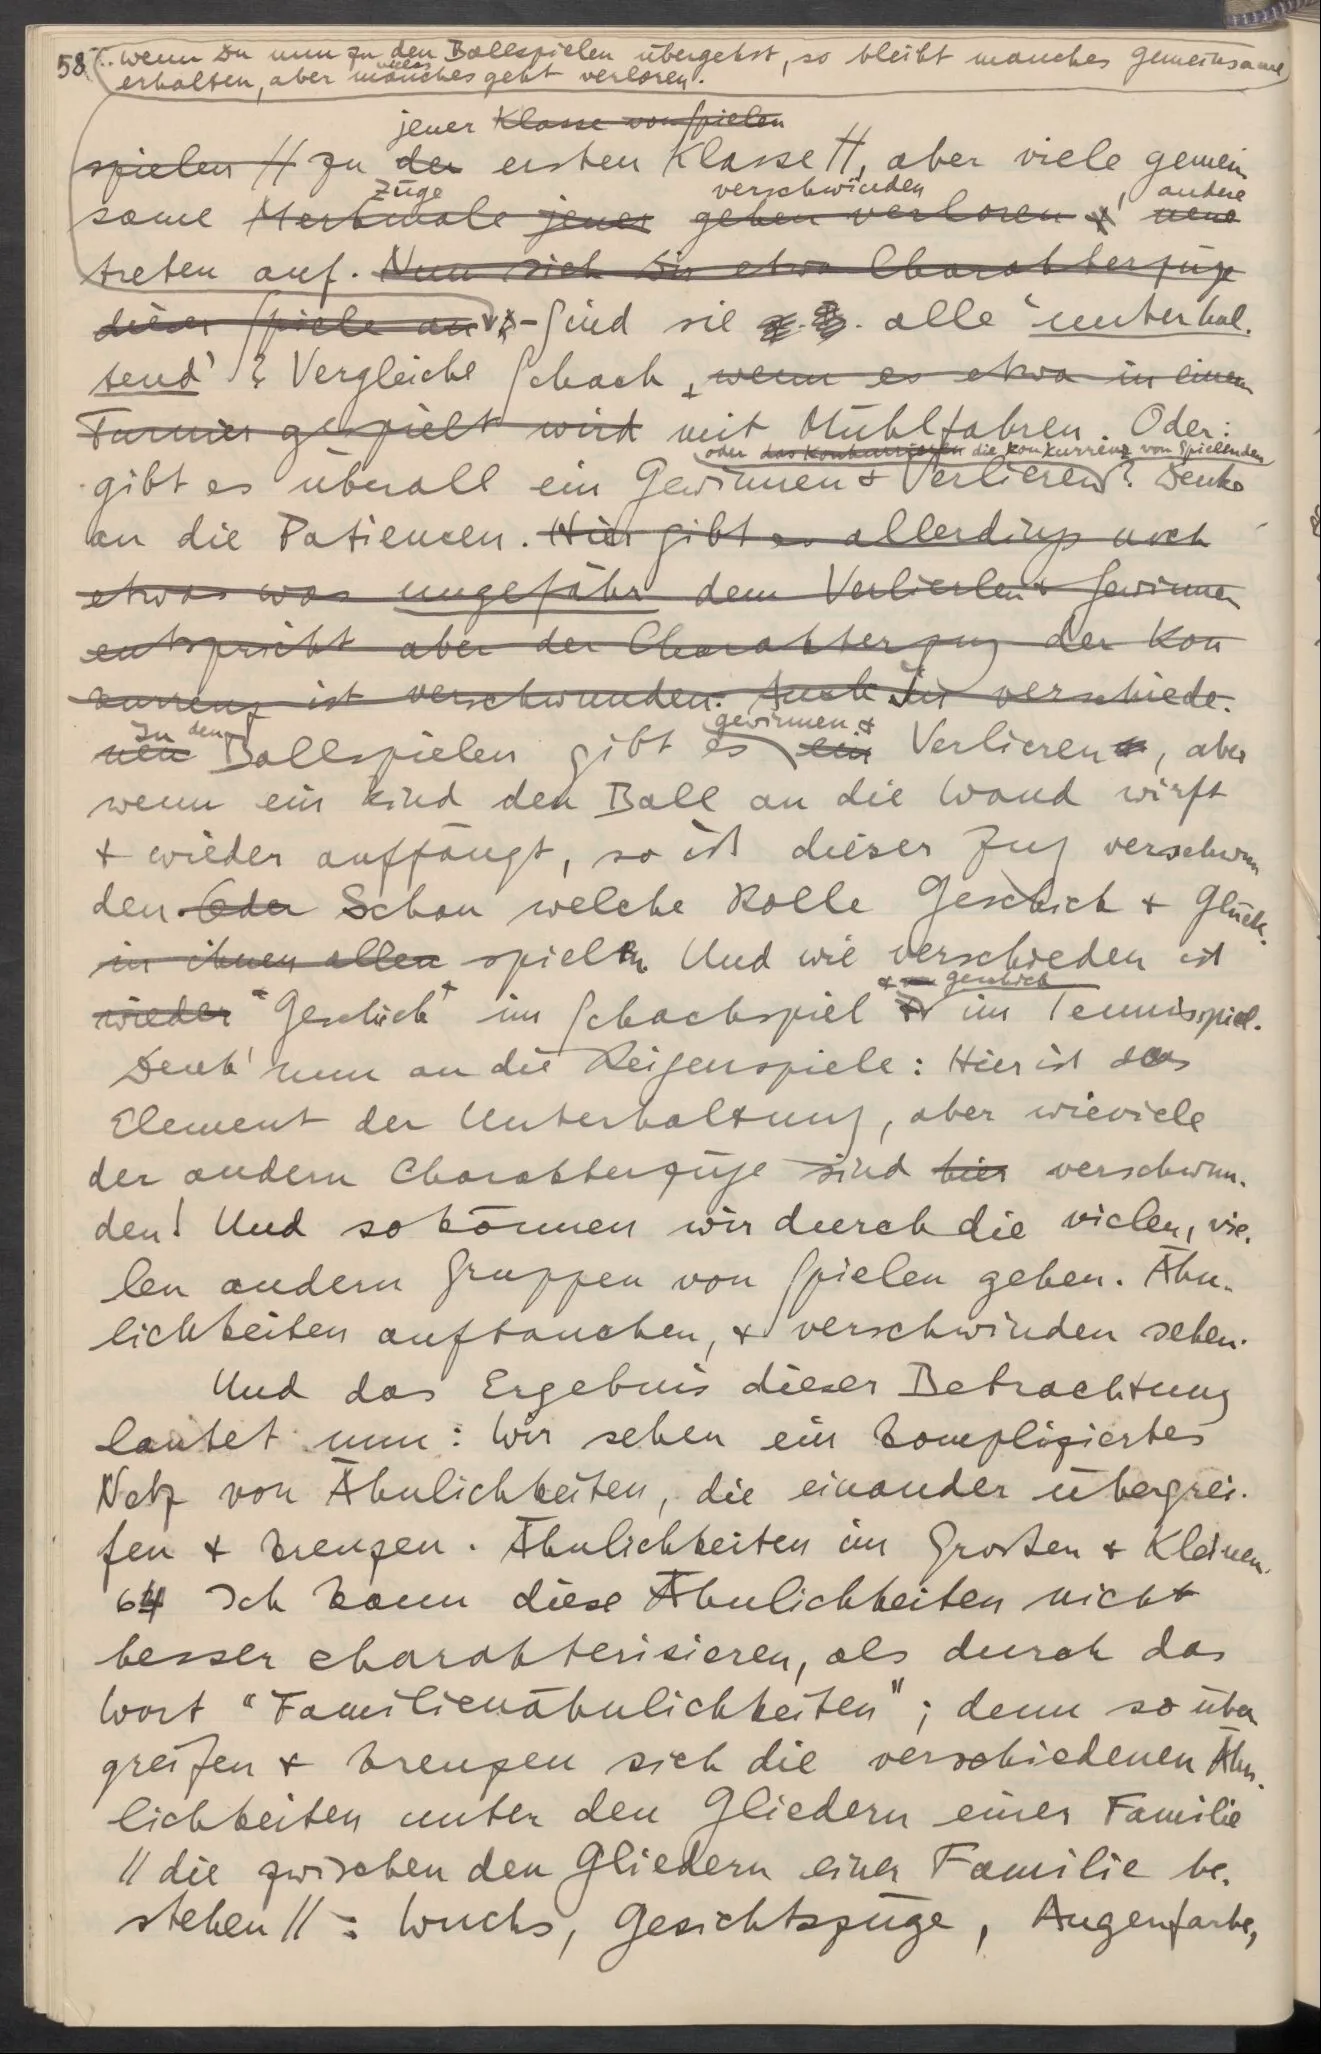 58
"wenn Du nun zu den Ballspielen übergehst, so bleibt manches Gemeinsame
erhalten, aber manches vieles geht verloren.
jener Klasse von Spielen
spielen // zu der ersten Klasse //, aber viele gemein
Züge verschwinden, andere
same Merkmale jener gehen verloren & neue
treten auf. Nun sieh Dir etwa Charakterzüge
dieser Spiele an – Sind sie z.B. alle 'unterhal-
tend'? Vergleiche Schach, wenn es etwa in einem
Turnier gespielt wird mit Mühlfahren. Oder:
oder das Konkurrieren die Konkurrenz von Spielenden
gibt es überall ein Gewinnen & Verlieren? Denke
an die Patiencen. Hier gibt es allerdings noch
etwas was ungefähr dem Verlieren & Gewinnen
entspricht aber der Charakterzug der Kon
kurrenz ist verschwunden. Auch in verschiede-
In den gewinnen &
nen Ballspielen gibt es ein Verlieren, aber
wenn ein Kind den Ball an die Wand wirft
& wieder auffängt, so ist dieser Zug verschwun
den. Oder Schau welche Rolle Geschick & Glück
in ihnen allen spielen. Und wie verschieden ist
& Geschick
wieder "Geschick" im Schachspiel & im Tennisspiel.
Denk' nun an die Reigenspiele: Hier ist das
Element der Unterhaltung, aber wieviele
der andern Charakterzüge sind hier verschwun-
den! Und so können wir durch die vielen, vie-
len andern Gruppen von Spielen gehen. Ähn-
lichkeiten auftauchen, & verschwinden sehen.
Und das Ergebnis dieser Betrachtung
lautet nun: Wir sehen ein kompliziertes
Netz von Ähnlichkeiten, die einander übergrei-
fen & kreuzen. Ähnlichkeiten im Großen & Kleinen.
64 Ich kann diese Ähnlichkeiten nicht
besser charakterisieren, als durch das
Wort "Familienähnlichkeiten"; denn so über
greifen & kreuzen sich die verschiedenen Ähn-
lichkeiten unter den Gliedern einer Familie
// die zwischen den Gliedern einer Familie be-
stehen //: Wuchs, Gesichtszüge, Augenfarbe,